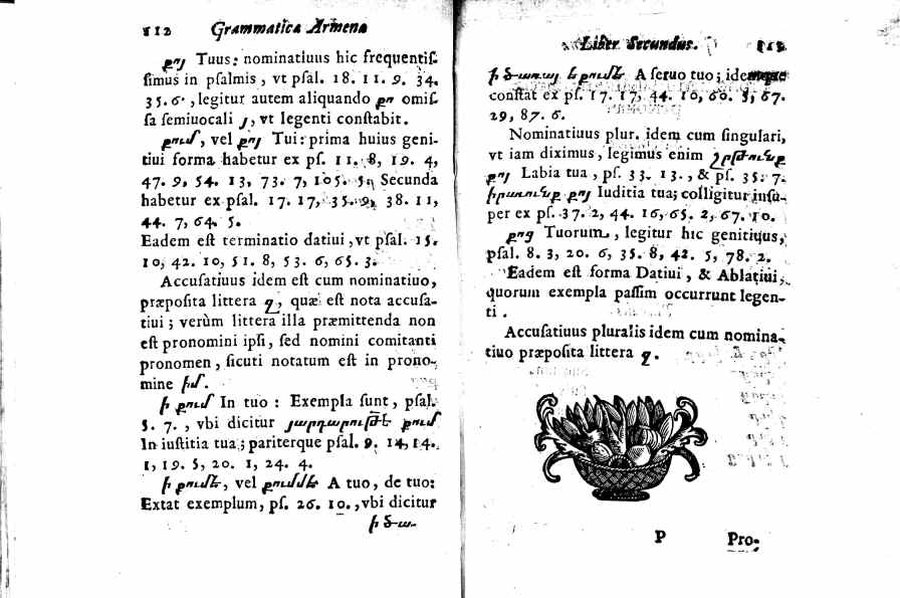 112 Grammatica Armena
քոյ Tuus: nominatiuus hic frequentiſ-
ſimus in pſalmis, vt pſal. 18. 11. 9. 34.
35. 6., legitur autem aliquando քո omiſ-
ſa ſemiuocali յ, vt legenti conſtabit.
քում, vel քոյ Tui: prima huius geni-
tiui forma habetur ex pſ. 11. 8, 19. 4,
47. 9, 54. 13, 73. 7, 105. 5. Secunda
habetur ex pſal. 17. 17, 35. 9, 38. 11,
44. 7, 64. 5.
Eadem eſt terminatio datiui, vt pſal. 15.
10, 42. 10, 51. 8, 53. 6, 65. 3.
Accuſatiuus idem eſt cum nominatiuo,
præpoſita littera զ, quæ eſt nota accuſa-
tiui; verùm littera illa præmittenda non
eſt pronomini ipſi, ſed nomini comitanti
pronomen, ſicuti notatum eſt in prono-
mine իմ.
ի քում In tuo: Exempla ſunt, pſal.
5. 7., vbi dicitur յարդարութե քում
In iuſtitia tua; pariterque pſal. 9. 14, 14.
1, 19. 5, 20. 1, 24. 4.
ի քումե, vel քումմե A tuo, de tuo:
Extat exemplum, pſ. 26. 10., vbi dicitur
ի ծա-
Liber Secundus. 113
ի ծառայ է քումե A ſeruo tuo; idemque
conſtat ex pſ. 17. 17, 44. 10, 60. 5, 67.
29, 87. 6.
Nominatiuus plur. idem cum ſingulari,
vt iam diximus, legimus enim շրթունք
քոյ Labia tua, pſ. 33. 13., & pſ. 35. 7.
իրաւունք քոյ Iuditia tua; colligitur inſu-
per ex pſ. 37. 2, 44. 16, 65. 2, 67. 10.
քոց Tuorum, legitur hic genitiuus,
pſal. 8. 3, 20. 6, 35. 8, 42. 5, 78. 2.
Eadem eſt forma Datiui, & Ablatiui,
quorum exempla paſſim occurrunt legen-
ti.
Accuſatiuus pluralis idem cum nomina-
tiuo præpoſita littera զ.
P Pro-